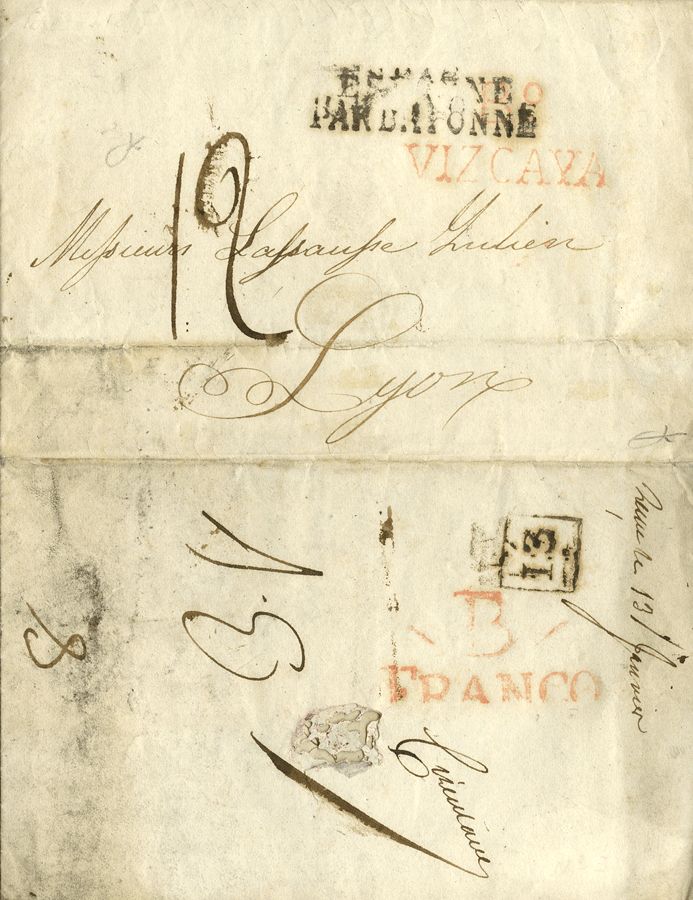 ESPAGNE
PAR BAYONNE
VIZCAYA
12
Messieurs Lassausse Julien
Lyon
13
B
FRANCO
13 Janvier
8
Circulaire